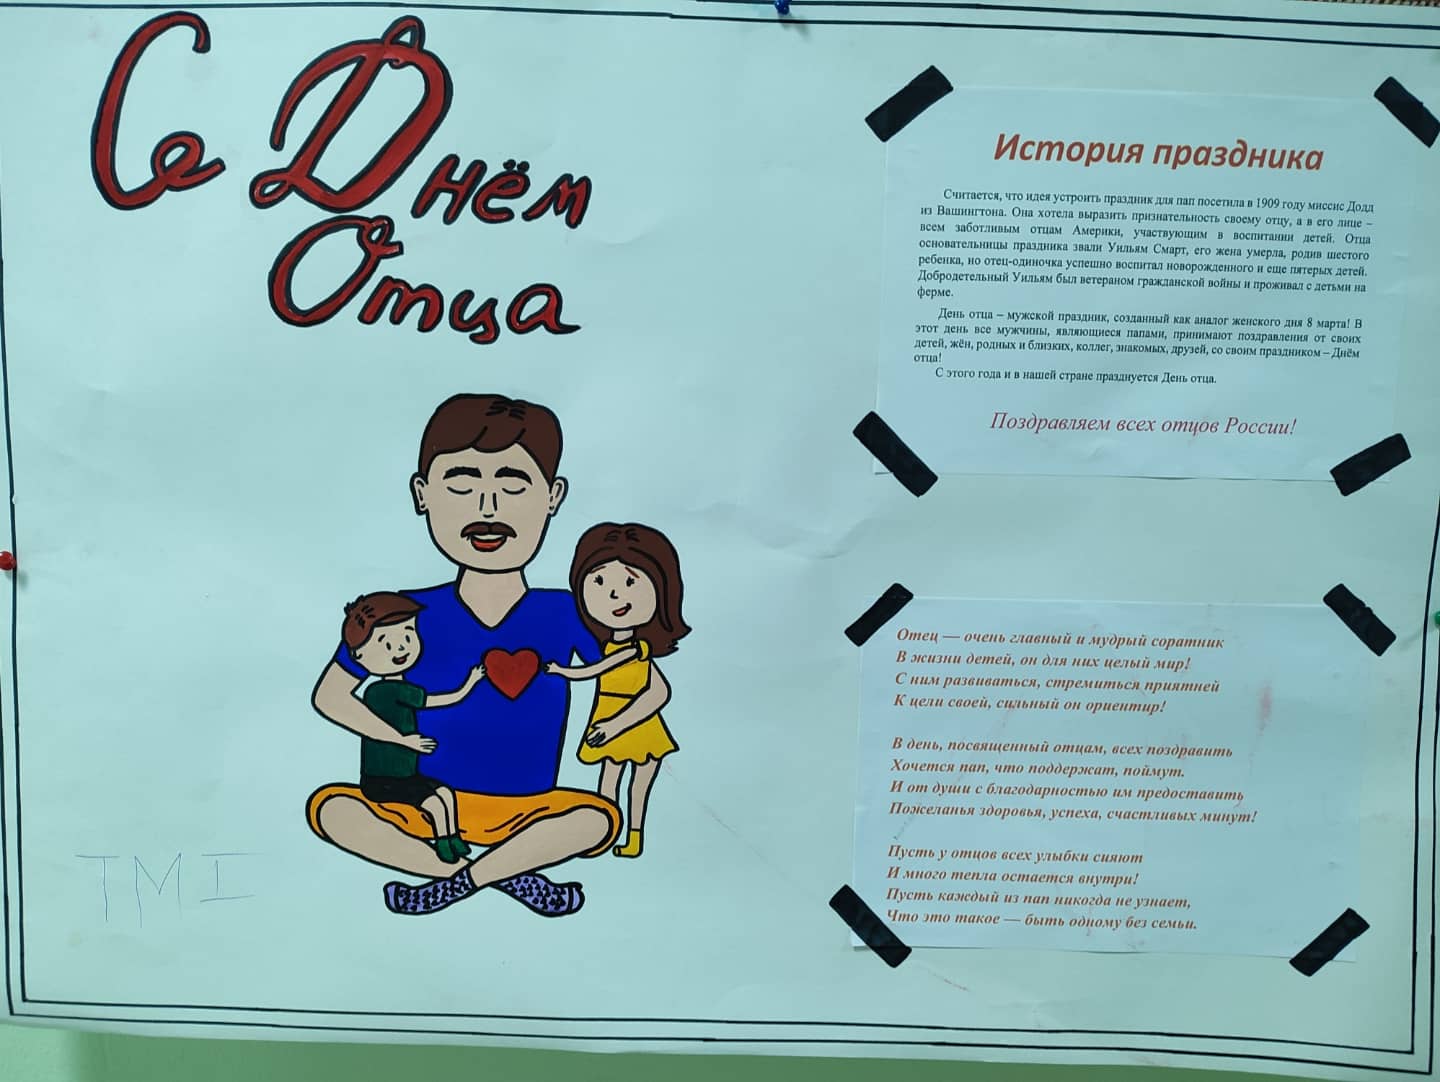 Со Днём
Отца
История праздника
Считается, что идея устроить праздник для пап посетила в 1909 году миссис Додд
из Вашингтона. Она хотела выразить признательность своему отцу, а в его лице –
всем заботливым отцам Америки, участвующим в воспитании детей. Отца
основательницы праздника звали Уильям Смарт, его жена умерла, родив шестого
ребенка, но отец-одиночка успешно воспитал новорожденного и еще пятерых детей.
Добродетельный Уильям был ветераном гражданской войны и проживал с детьми на
ферме.
День отца – мужской праздник, созданный как аналог женского дня 8 марта! В
этот день все мужчины, являющиеся папами, принимают поздравления от своих
детей, жён, родных и близких, коллег, знакомых, друзей, со своим праздником – Днём
отца!
С этого года и в нашей стране празднуется День отца.
Поздравляем всех отцов России!
Отец — очень главный и мудрый соратник
В жизни детей, он для них целый мир!
С ним развиваться, стремиться приятней
К цели своей, сильный он ориентир!
В день, посвященный отцам, всех поздравить
Хочется пап, что поддержат, поймут.
И от души с благодарностью им предоставить
Пожеланья здоровья, успеха, счастливых минут!
Пусть у отцов всех улыбки сияют
И много тепла остается внутри!
Пусть каждый из пап никогда не узнает,
Что это такое — быть одному без семьи.
TMI